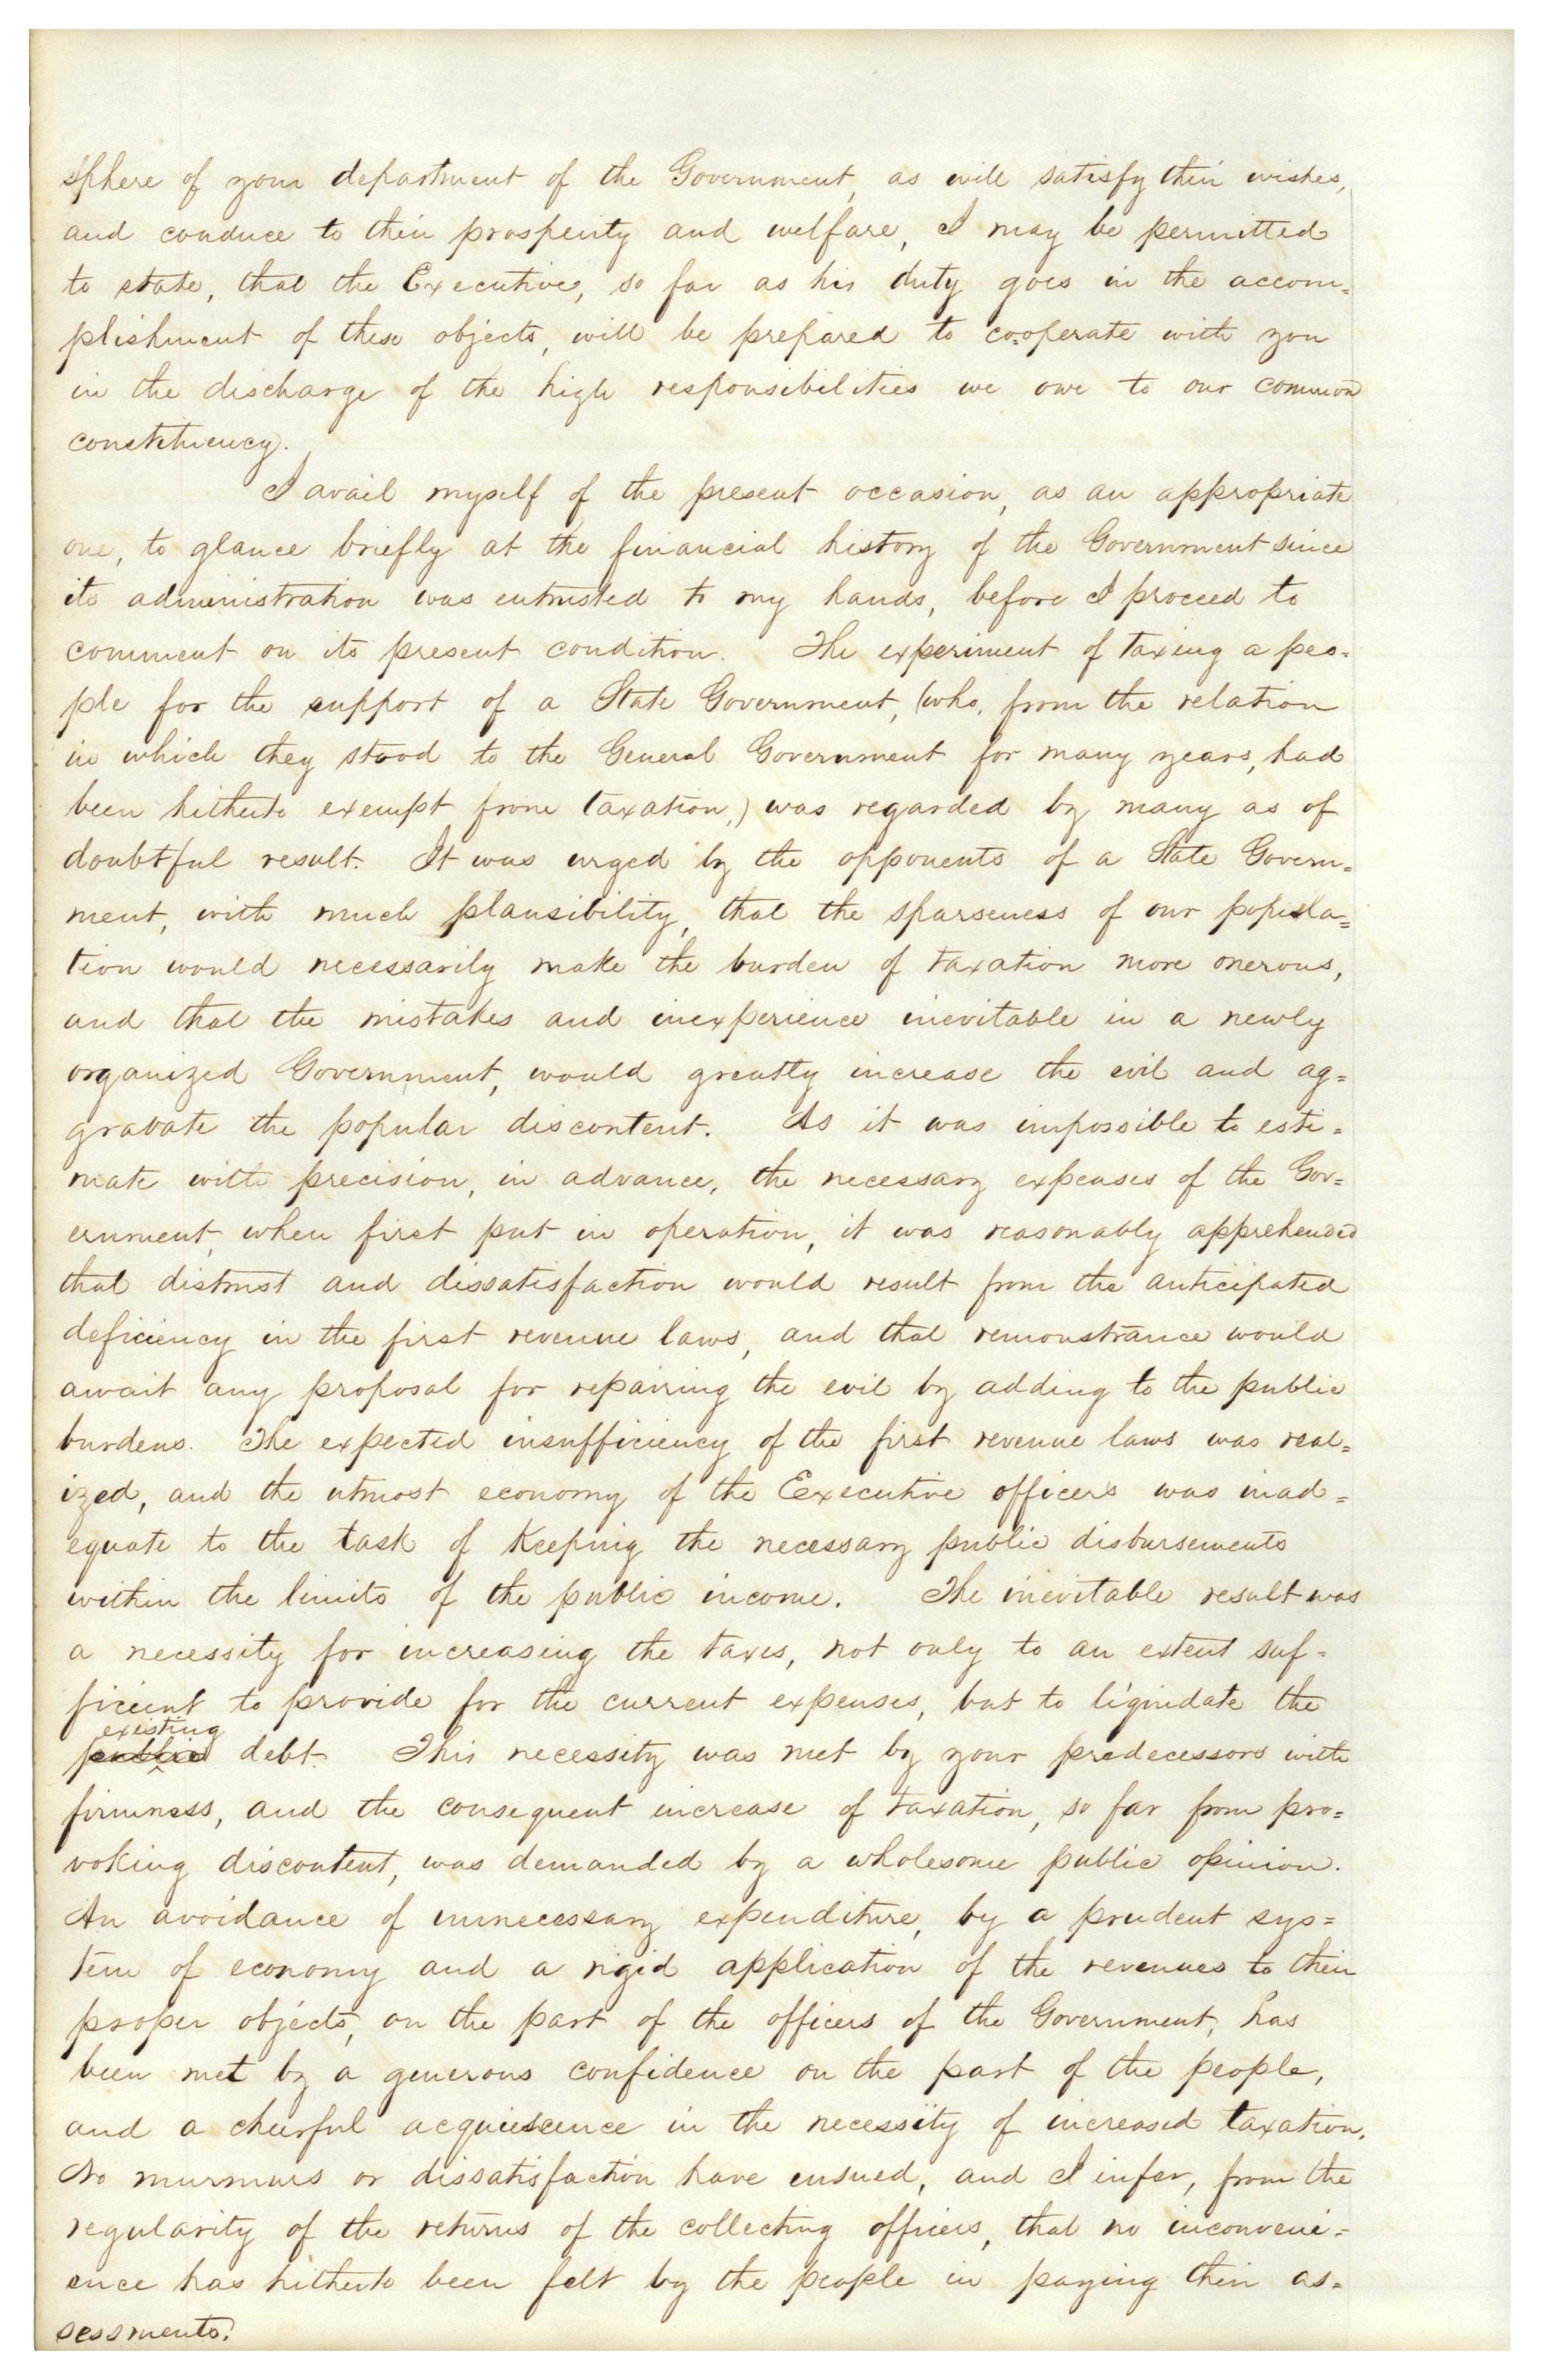 sphere of your department of the Government, as will satisfy their wishes,
and conduce to their prosperity and welfare, I may be permitted
to state, that the Executive, so far as his duty goes in the accom=
plishment of these objects, will be prepared to co=operate with you
in the discharge of the high responsibilities we owe to our common
constituency.
I avail myself of the present occasion, as an appropriate
one, to glance briefly at the financial history of the Government since
its administration was entrusted to my hands, before I proceed to
comment on its present condition. The experiment of taxing a peo=
ple for the support of a State Government, (who, from the relation
in which they stood to the General Government for many years, had
been hitherto exempt from taxation,) was regarded by many as of
doubtful result. It was urged by the opponents of a State Govern=
ment, with much plausibility, that the sparseness of our popula=
tion would necessarily make the burden of taxation more onerous,
and that the mistakes and inexperience inevitable in a newly
organized Government, would greatly increase the evil and ag=
gravate the popular discontent. As it was impossible to esti=
mate with precision, in advance, the necessary expenses of the Gov=
ernment, when first put in operation, it was reasonably apprehended
that distrust and dissatisfaction would result from the anticipated
deficiency in the first revenue laws, and that remonstrance would
await any proposal for repairing the evil by adding to the public
burdens. The expected insufficiency of the first revenue laws was real=
ized, and the utmost economy of the Executive officers was inad=
equate to the task of keeping the necessary public disbursements
within the limits of the public income. The inevitable result was
a necessity for increasing the taxes, not only to an extent suf=
ficient to provide for the current expenses, but to liquidate the
existing
public debt. This necessity was met by your predecessors with
firmness, and the consequent increase of taxation, so far from pro=
voking discontent, was demanded by a wholesome public opinion.
An avoidance of unnecessary expenditure, by a prudent sys=
tem of economy and a rigid application of the revenues to their
proper objects, on the part of the officers of the Government, has
been met by a generous confidence on the part of the people,
and a cheerful acquiescence in the necessity of increased taxation.
No murmurs or dissatisfaction have ensued, and I infer, from the
regularity of the returns of the collecting officers, that no inconveni=
ence has hitherto been felt by the people in paying their as=
sessments.